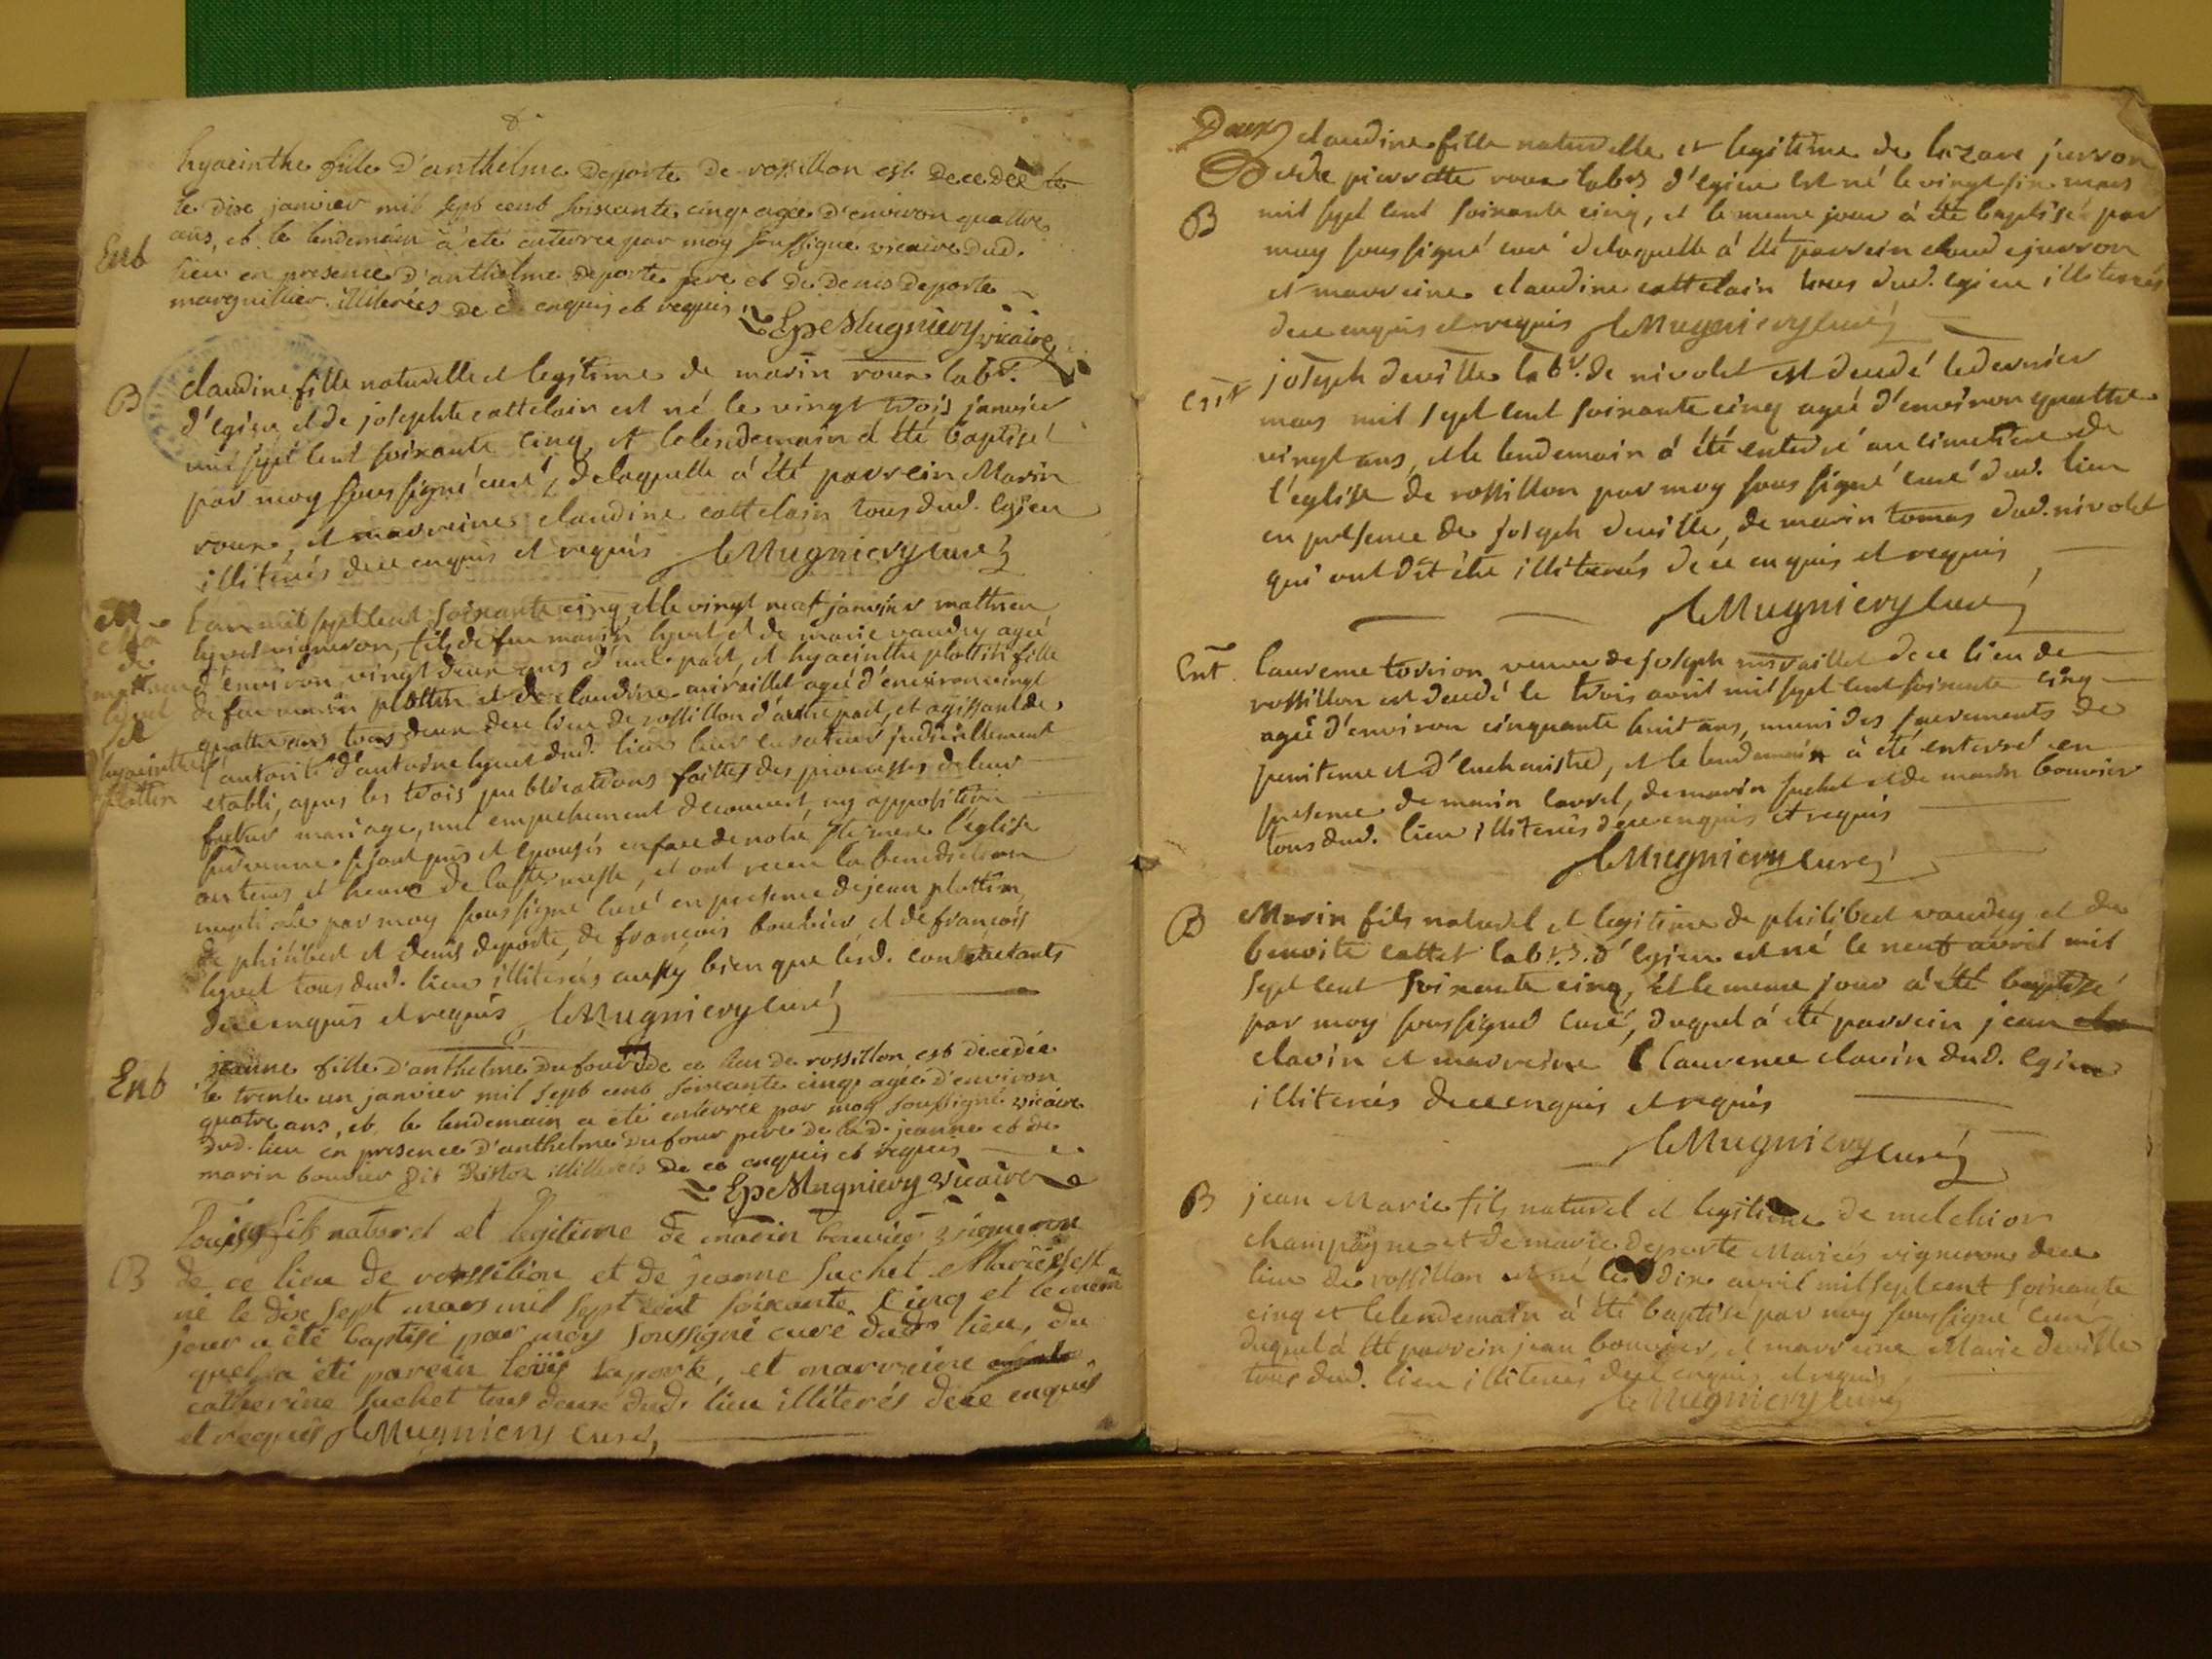 hyacinthe fille d'anthelme deporte de rossillon est decedée le
le dixe janvier mil sept cent soixante cinq agée d'environ quattre
ans, et le lendemain à été enterrée par moy soussigné vicaire dud.
Ent
lieu en presence d'anthelme deporte pere et de denis deporte
marguillier illiterées de ce enquis et requis
EpeMugniery vicaire
B
claudine fille naturelle et legitime de marin roux labr.
d'egieu et de josephte cattelain est né le vingt trois janvier
mil sept cent soixante cinq, et le lendemain à été baptisé
par moy soussigné curé, delaquelle à été parrein Marin
roux, et marreine claudine cattelain tous dud. egieu
illiterés dece enquis et requis leMugniery curé
M
de
mathieu
lyvet
et
hyacinthe
plottin
l'an mil sept cent soixante cinq, et le vingt neuf janvier mathieu
lyvet vigneron, fils de feu marin lyvet et de marie vaudey agé
d'environ vingt deux ans d'une part, et hyacinthe plottin fille
de feu marin plottin et de claudine miraillet agé d'environ vingt
quattre ans tous deux dece lieu de rossillon d'autre part, et agissant de
l'autorité d'antoine lyvet dud. lieu leur curateur judiciellement
etabli, apres les trois publications faittes des promesses de leur
futur mariage, nul empechement decouvert, ny opposition
survenue se sont pris et epousés en face de notre ste mere l'église
au tems et heure de la ste messe, et ont receu la benediction
nuptiale par moy soussigné curé en presence de jean plottin,
de philibert et denis deporte, de françois boubier, et de françois
lyvet tous dud. lieu illiterés aussy bien que lesd. contractants
dece enquis et requis leMugniery curé
Ent
jeanne fille d'anthelme dufour de ce lieu de rossillon est decedée
le trente un janvier mil sept cent soixante cinq agée d'environ
quatre ans, et le lendemain a été enterrée par moy soussigné vicaire
dud. lieu en presence d'anthelme dufour pere de lad. jeanne et de
marin bouvier dit illiterés de ce enquis et requis
EpeMugniery vicaire
B
louis fils naturel et legitime de marin bouvier vigneron
de ce lieu de rossillion et de jeanne suchet Mariés est
né le dix sept mars mil sept cent soixante cinq et le mem
jour a été baptisé par moy soussigné curé dud. lieu, du
quel a été parein loüis laporte, et marreine
catherine suchet tous deux dud. lieu illiterés dece enquis
et requis leMugniery curé
Deux
claudine fille naturelle et legitime de lazare jurron
Et de pierrette roux labrs d'egieu est né le vingt six mars
B
mil sept cent soixante cinq, et le meme jour à été baptisé par
moy soussigné curé delaquelle à été parrein claude jurron
et marreine claudine cattelain tous dud. egieu illiterés
dece enquis et requis leMugniery curé
Ent
joseph deville labr. de nivolet est decedé le dernier
mars mil sept cent soixante cinq agé d'environ quattre
vingt ans, et le lendemain à été enterré au cimetiere de
l'église de rossillon par moy soussigné curé dud. lieu
en presence de joseph deville, de marin tomas dud. nivolet
qui ont dit être illiterés dece enquis et requis
leMugniery curé
Ent.
laurence torrion veuve de joseph miraillet dece lieu de
rossillon est decedé le trois avril mil sept cent soixante cinq
agé d'environ cinquante huit ans, muni des sacrements de
penitence et d'eucharistie, et le lendemain à été enterré en
presence de marin carrel, de marin suchet et de marin bouvier
tous dud. lieu illiterés dece enquis et requis
leMugniery curé
B
Marin fils naturel et legitime de philibert vaudey et de
benoite cattet labrs. d'egieu est né le neuf avril mil
sept cent soixante cinq, et le meme jour à été baptisé
par moy soussigné curé, duquel à été parrein jean
clavin et marreine laurence clavin dud. egieu
illiterés dece enquis et requis
leMugniery curé
B
jean Marie fils naturel et legitime de melchior
champagne et de marie deporte Mariés vignerons dece
lieu de rossillon est né le dix avril mil sept cent soixante
cinq et le lendemain à été baptisé par moy soussigné curé
duquel à été parrein jean bouvier, et marreine Marie deville
tous dud. lieu illiterés dece enquis et requis
leMugniery curé